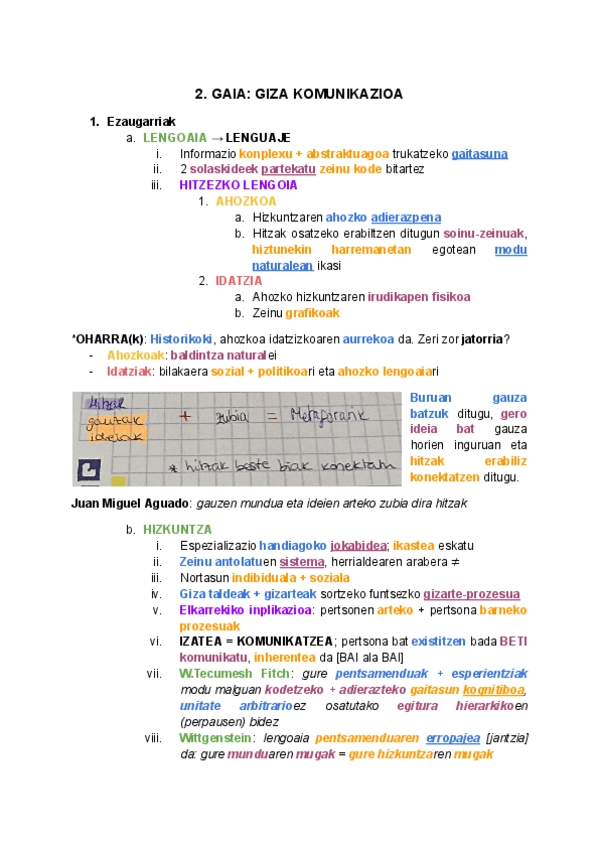 2. GAIA: GIZA KOMUNIKAZIOA
1. Ezaugarriak
a. LENGOAIA → LENGUAJE
i. Informazio konplexu + abstraktuagoa trukatzeko gaitasuna
ii. 2 solaskideek partekatu zeinu kode bitartez
iii. HITZEZKO LENGOIA
1. AHOZKOA
a. Hizkuntzaren ahozko adierazpena
b. Hitzak osatzeko erabiltzen ditugun soinu-zeinuak,
hiztunekin harremanetan egotean modu
naturalean ikasi
2. IDATZIA
a. Ahozko hizkuntzaren irudikapen fisikoa
b. Zeinu grafikoak
*OHARRA(k): Historikoki, ahozkoa idatzizkoaren aurrekoa da. Zeri zor jatorria?
- Ahozkoak: baldintza naturalei
- Idatziak: bilakaera sozial + politikoari eta ahozko lengoaiari
Hitzak
gauzak + zubia = Metaforarik
ideiak
* hitzak beste biak konektatu
Buruan gauza
batzuk ditugu, gero
ideia bat gauza
horien inguruan eta
hitzak erabiliz
konektatzen ditugu.
Juan Miguel Aguado: gauzen mundua eta ideien arteko zubia dira hitzak
b. HIZKUNTZA
i. Espezializazio handiagoko jokabidea; ikastea eskatu
ii. Zeinu antolatuen sistema, herrialdearen arabera ≠
iii. Nortasun indibiduala + soziala
iv. Giza taldeak + gizarteak sortzeko funtsezko gizarte-prozesua
v. Elkarrekiko inplikazioa: pertsonen arteko + pertsona barneko
prozesuak
vi. IZATEA = KOMUNIKATZEA; pertsona bat existitzen bada BETI
komunikatu, inherentea da [BAI ala BAI]
vii. W.Tecumesh Fitch: gure pentsamenduak + esperientziak
modu malguan kodetzeko + adierazteko gaitasun kognitiboa,
unitate arbitrarioez osatutako egitura hierarkikoen
(perpausen) bidez
viii. Wittgenstein: lengoaia pentsamenduaren erropajea [jantzia]
da: gure munduaren mugak = gure hizkuntzaren mugak